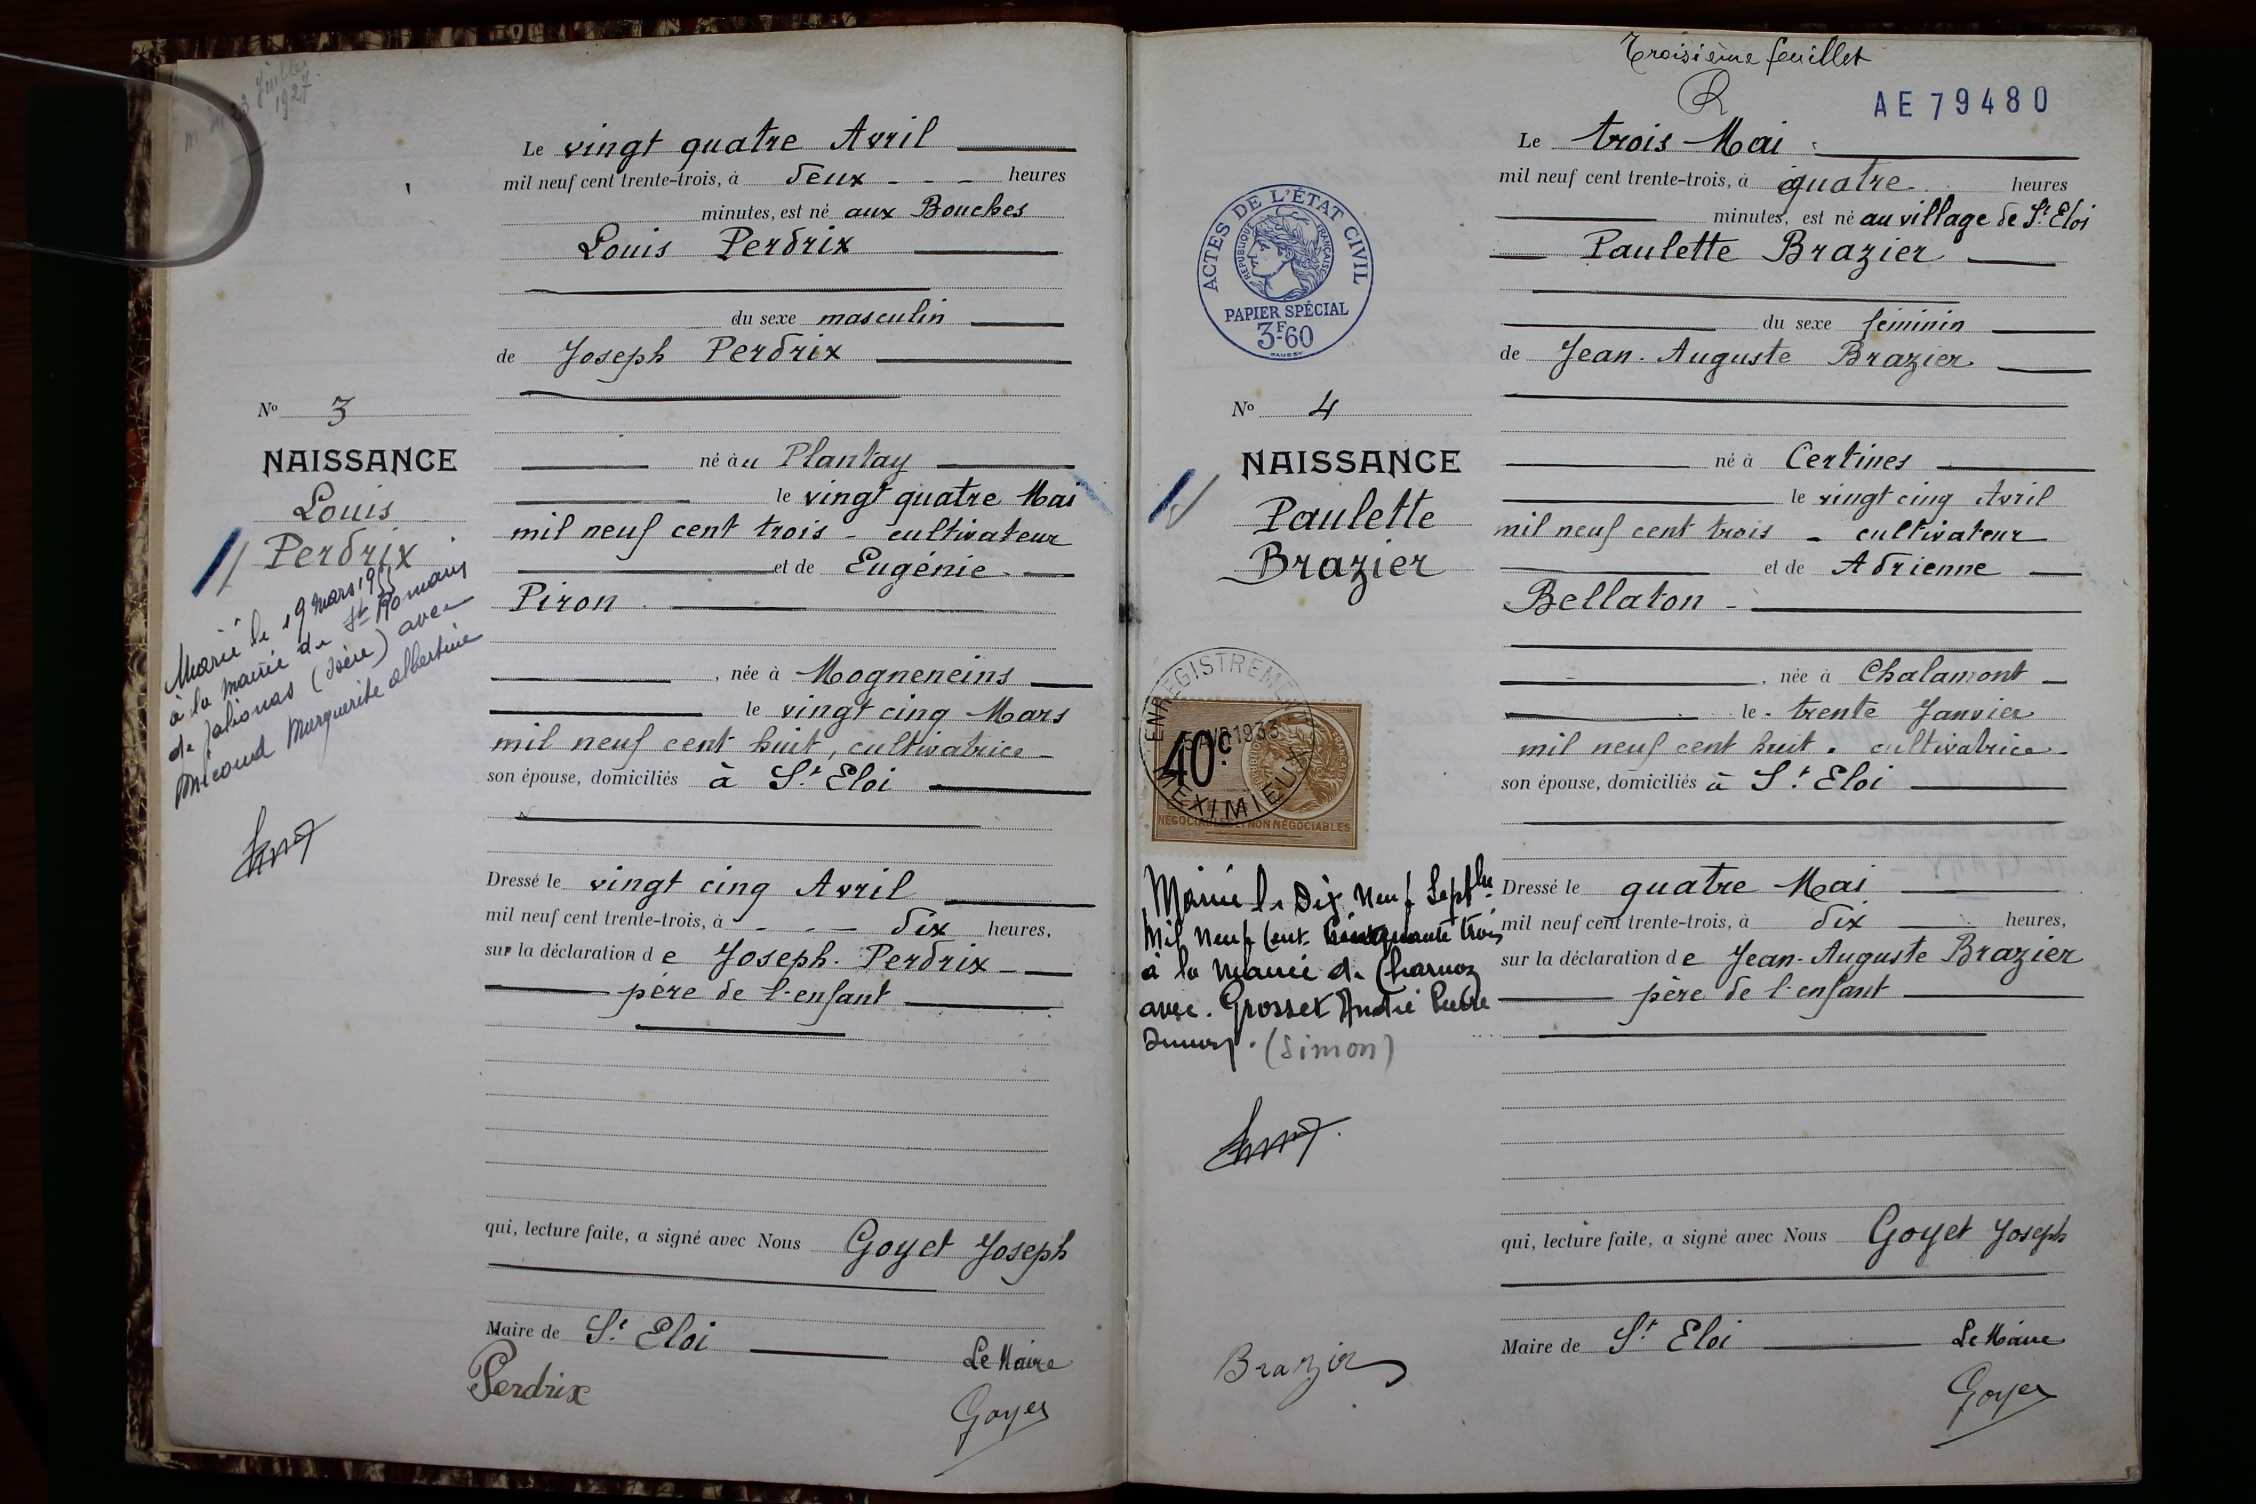 Juillet
1927
Le vingt quatre Avril
mil neuf cent trente-trois, à deux heures
minutes, est né aux Bouches
Louis Perdrix
du sexe masculin
de Joseph Perdrix
No 3
NAISSANCE
Louis
Perdrix
né à u Plantay
le vingt quatre Mai
mil neuf cent trois - cultivateur
et de Eugénie
Piron
Marié le 19 mars 1955
à la mairie de St Romans
de Jalionas (Isère) avec
Micoud Marguerite Albertine
, née à Mogneneins
le vingt cinq Mars
mil neuf cent huit, cultivatrice
son épouse, domiciliés à St Eloi
Dressé le vingt cinq Avril
mil neuf cent trente-trois, à dix heures,
sur la déclaration d e Joseph Perdrix
père de l'enfant
qui, lecture faite, a signé avec Nous Goyet Joseph
Maire de St Eloi
Le Maire
Perdrix
Goyet
Troisième feuillet
AE 79480
Le trois Mai
mil neuf cent trente-trois, à quatre heures
minutes, est né au village de St Eloi
Paulette Brazier
du sexe féminin
de Jean-Auguste Brazier
ACTES DE L'ÉTAT CIVIL
RÉPUBLIQUE FRANÇAISE
PAPIER SPÉCIAL
3F60
No 4
NAISSANCE
Paulette
Brazier
né à Certines
le vingt cinq Avril
mil neuf cent trois - cultivateur
et de Adrienne
Bellaton
, née à Chalamont
le trente Janvier
mil neuf cent huit. cultivatrice
son épouse, domiciliés à St Eloi
ENREGISTREMENT
1933
40c
MEXIMIEUX
NÉGOCIABLES ET NON NÉGOCIABLES
Marié le Dix Neuf Septbre
Mil Neuf Cent Cinquante trois
à la Mairie de Charnoz
avec Grosset André Pierre
(Simon)
Dressé le quatre Mai
mil neuf cent trente-trois, à dix heures,
sur la déclaration d e Jean-Auguste Brazier
père de l'enfant
qui, lecture faite, a signé avec Nous Goyet Joseph
Maire de St Eloi
Le Maire
Brazier
Goyet